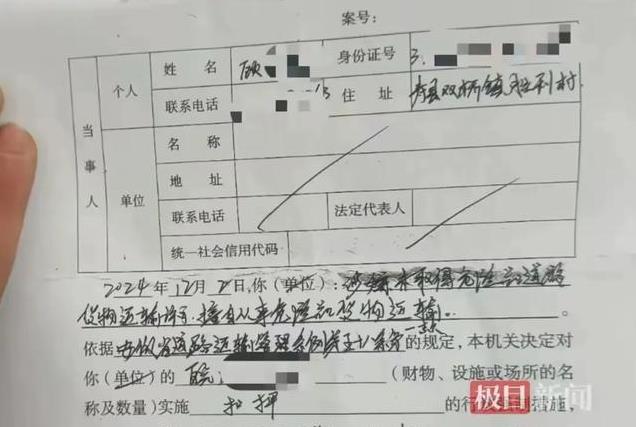 案号：
个人 姓名 顾 身份证号 3.
联系电话 13 住址 寿县双桥镇胜利村
当事人 单位 名称
地址
联系电话 法定代表人
统一社会信用代码
2024年12月2日，你（单位）：涉嫌未取得危险品道路
货物运输许可，擅自从事危险品货物运输。
依据 安徽省道路运输管理条例 的规定，本机关决定对
你（单位）的 皖 （财物、设施或场所的名
称及数量）实施 扣押 的行政强制措施，
极目新闻